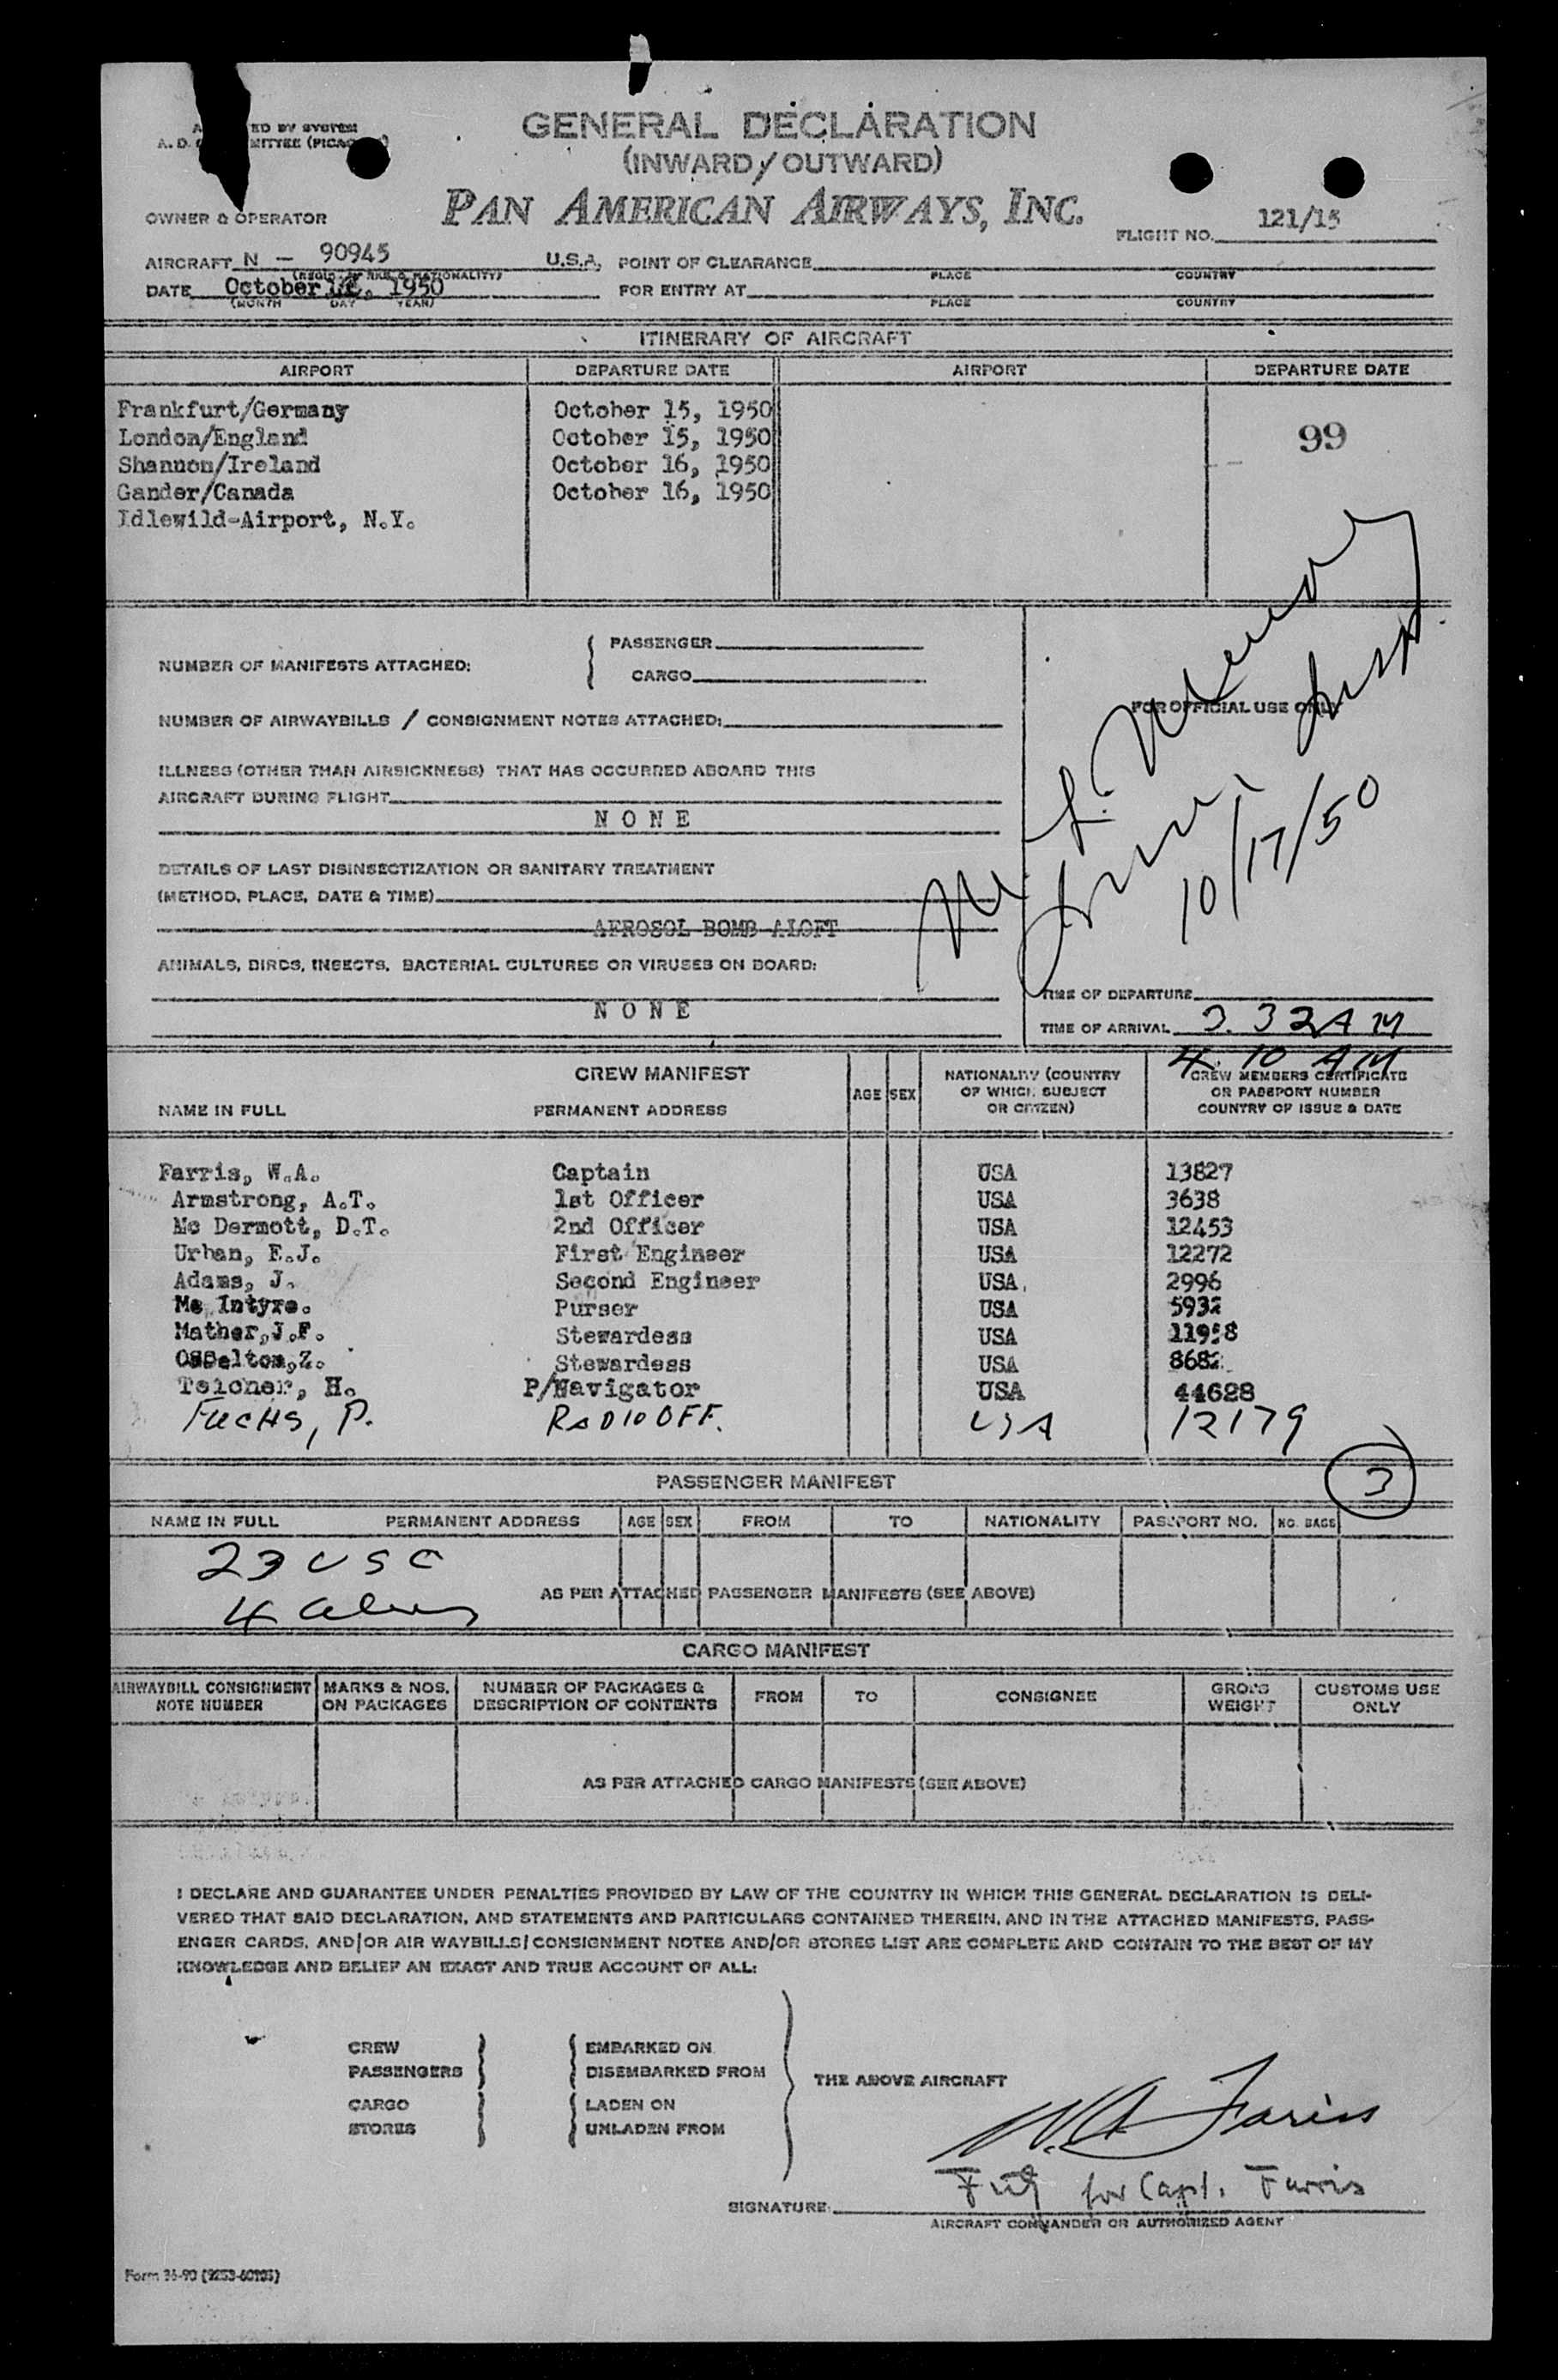 GENERAL DECLARATION
(INWARD/OUTWARD)
PAN AMERICAN AIRWAYS, INC.
ED BY SYSTEM
A. D. MITTEE (PICAO
OWNER & OPERATOR
FLIGHT NO. 121/15
AIRCRAFT N - 90945 U.S.A. POINT OF CLEARANCE
PLACE COUNTRY
DATE October 1950 FOR ENTRY AT
(MONTH DAY YEAR) PLACE COUNTRY
ITINERARY OF AIRCRAFT
AIRPORT DEPARTURE DATE AIRPORT DEPARTURE DATE
Frankfurt/Germany October 15, 1950
London/England October 15, 1950 99
Shannon/Ireland October 16, 1950
Gander/Canada October 16, 1950
Idlewild-Airport, N.Y.
NUMBER OF MANIFESTS ATTACHED: PASSENGER
CARGO
NUMBER OF AIRWAYBILLS / CONSIGNMENT NOTES ATTACHED:
FOR OFFICIAL USE ONLY
ILLNESS (OTHER THAN AIRSICKNESS) THAT HAS OCCURRED ABOARD THIS
AIRCRAFT DURING FLIGHT
N O N E
10/17/50
DETAILS OF LAST DISINSECTIZATION OR SANITARY TREATMENT
(METHOD, PLACE, DATE & TIME)
AEROSOL BOMB ALOFT
ANIMALS, BIRDS, INSECTS, BACTERIAL CULTURES OR VIRUSES ON BOARD:
N O N E
TIME OF DEPARTURE
TIME OF ARRIVAL 3.32 AM
4.10 AM
CREW MANIFEST
NAME IN FULL PERMANENT ADDRESS AGE SEX NATIONALITY (COUNTRY OF WHICH SUBJECT OR CITIZEN) CREW MEMBERS CERTIFICATE OR PASSPORT NUMBER COUNTRY OF ISSUE & DATE
Farris, W.A. Captain USA 13827
Armstrong, A.T. 1st Officer USA 3638
Mc Dermott, D.T. 2nd Officer USA 12453
Urban, E.J. First Engineer USA 12272
Adams, J. Second Engineer USA 2996
Mc Intyre. Purser USA 5932
Mather,J.F. Stewardess USA 11958
Stewardess USA 8682
Teichner, H. P/Navigator USA 44628
FUCHS, P. RADIO OFF. USA 12179
PASSENGER MANIFEST 3
NAME IN FULL PERMANENT ADDRESS AGE SEX FROM TO NATIONALITY PASSPORT NO. NO. BAGS
23 USC
4 aliens
AS PER ATTACHED PASSENGER MANIFESTS (SEE ABOVE)
CARGO MANIFEST
AIRWAYBILL CONSIGNMENT NOTE NUMBER MARKS & NOS. ON PACKAGES NUMBER OF PACKAGES & DESCRIPTION OF CONTENTS FROM TO CONSIGNEE GROSS WEIGHT CUSTOMS USE ONLY
AS PER ATTACHED CARGO MANIFESTS (SEE ABOVE)
I DECLARE AND GUARANTEE UNDER PENALTIES PROVIDED BY LAW OF THE COUNTRY IN WHICH THIS GENERAL DECLARATION IS DELI-
VERED THAT SAID DECLARATION, AND STATEMENTS AND PARTICULARS CONTAINED THEREIN, AND IN THE ATTACHED MANIFESTS, PASS-
ENGER CARDS, AND/OR AIR WAYBILLS/CONSIGNMENT NOTES AND/OR STORES LIST ARE COMPLETE AND CONTAIN TO THE BEST OF MY
KNOWLEDGE AND BELIEF AN EXACT AND TRUE ACCOUNT OF ALL:
CREW EMBARKED ON
PASSENGERS DISEMBARKED FROM
THE ABOVE AIRCRAFT
CARGO LADEN ON
STORES UNLADEN FROM
W.A. Farris
for Capt. Farris
SIGNATURE:
AIRCRAFT COMMANDER OR AUTHORIZED AGENT